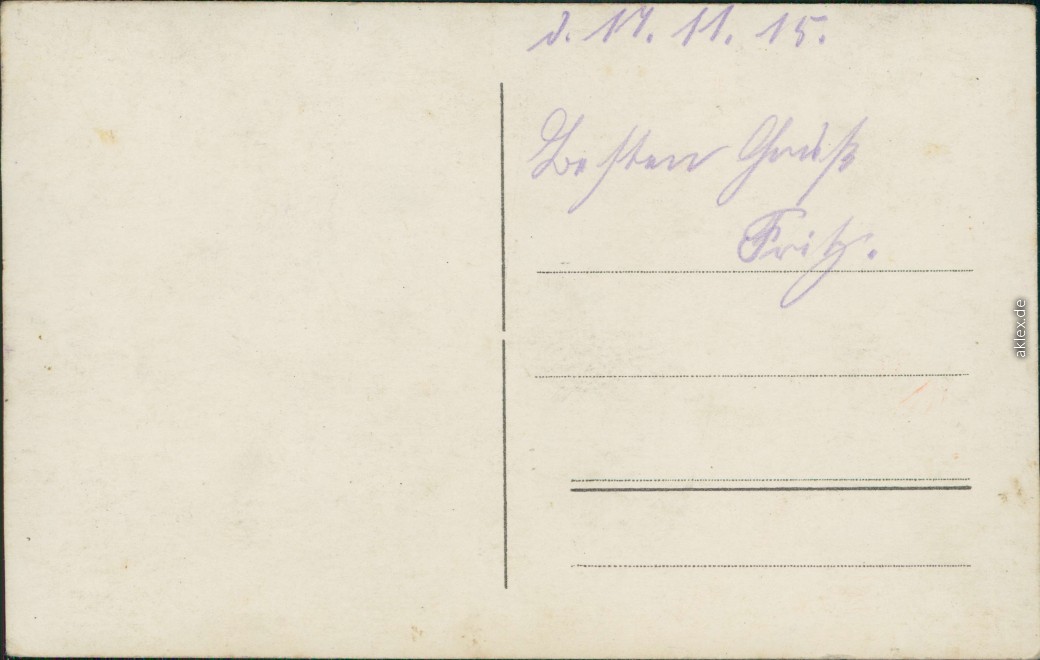 d. 17. 11. 15.
Besten Gruß
Fritz.
aklex.de